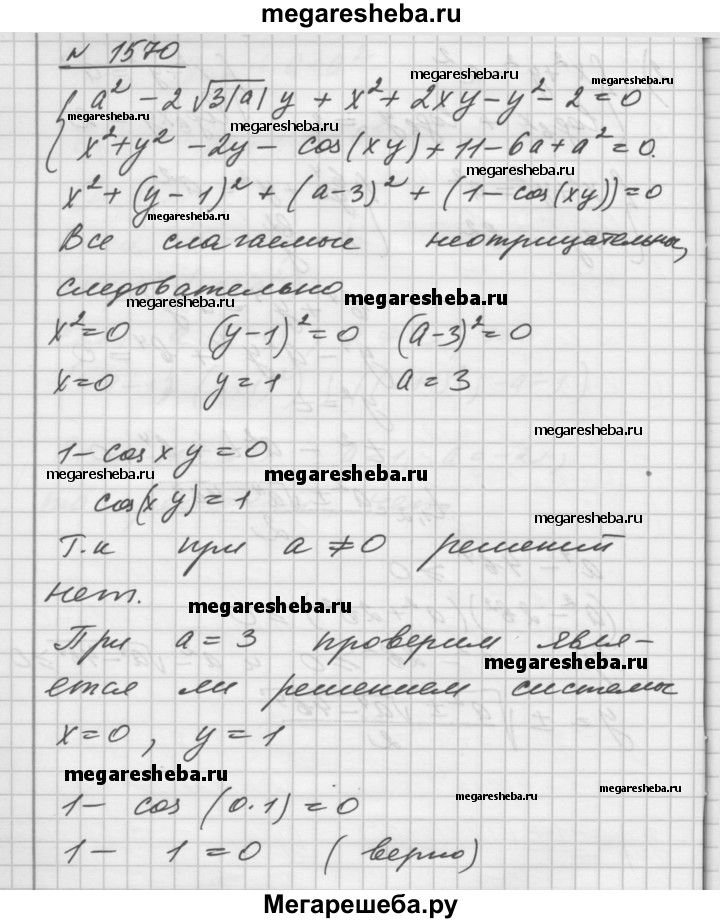 megaresheba.ru
N 1570
megaresheba.ru
megaresheba.ru
{ a² - 2√3|a| y + x² + 2xy - y² - 2 = 0
megaresheba.ru
megaresheba.ru
x² + y² - 2y - cos(xy) + 11 - 6a + a² = 0.
x² + (y - 1)² + (a - 3)² + (1 - cos(xy)) = 0
megaresheba.ru
Все слагаемые неотрицательны,
следовательно
megaresheba.ru
megaresheba.ru
x² = 0 (y - 1)² = 0 (a - 3)² = 0
megaresheba.ru
x = 0 y = 1 a = 3
megaresheba.ru
1 - cos x y = 0
megaresheba.ru
megaresheba.ru
cos(x y) = 1
megaresheba.ru
Т.к при a ≠ 0 решений
нет.
megaresheba.ru
При a = 3 проверим явля-
megaresheba.ru
ется ли решением системы
x = 0, y = 1
megaresheba.ru
1 - cos (0·1) = 0
megaresheba.ru
megaresheba.ru
1 - 1 = 0 (верно)
Мегарешеба.ру